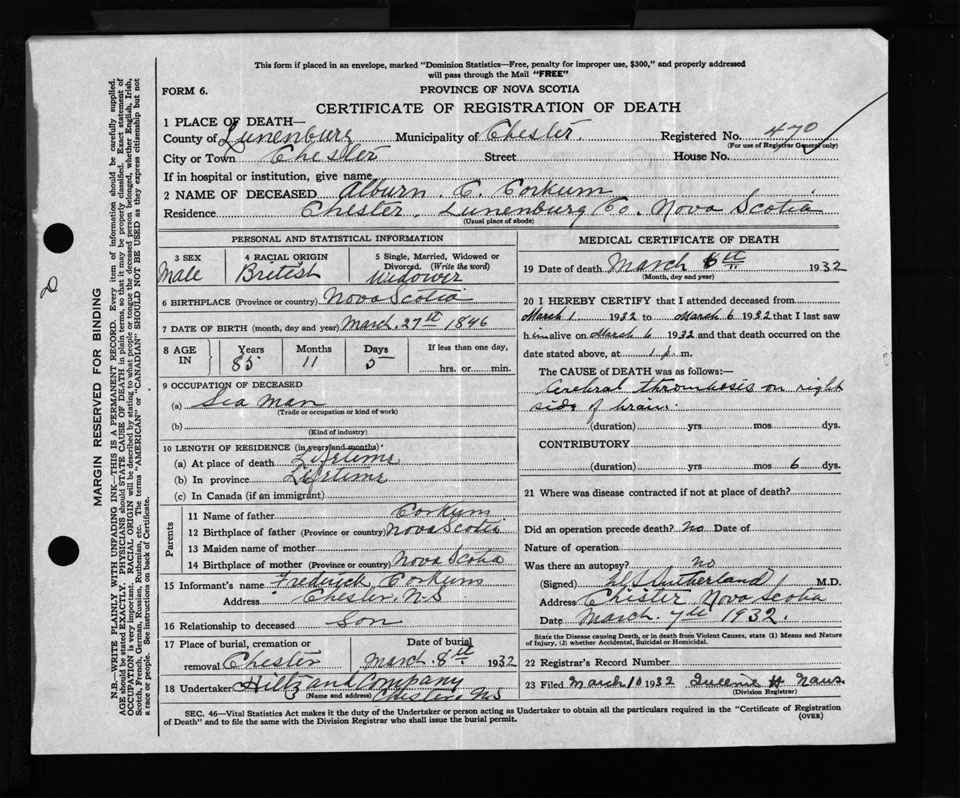 This form if placed in an envelope, marked "Dominion Statistics—Free, penalty for improper use, $300," and properly addressed
will pass through the Mail "FREE"
FORM 6.
PROVINCE OF NOVA SCOTIA
CERTIFICATE OF REGISTRATION OF DEATH
1 PLACE OF DEATH—
County of Lunenburg Municipality of Chester Registered No. 470
(For use of Registrar General only)
City or Town Chester Street House No.
If in hospital or institution, give name
2 NAME OF DECEASED Alburn C. Corkum
Residence Chester, Lunenburg Co. Nova Scotia
(Usual place of abode)
PERSONAL AND STATISTICAL INFORMATION
3 SEX 4 RACIAL ORIGIN 5 Single, Married, Widowed or
Divorced. (Write the word)
Male British Widower
6 BIRTHPLACE (Province or country) Nova Scotia
7 DATE OF BIRTH (month, day and year) March 27th 1846
8 AGE IN Years Months Days If less than one day,
85 11 5 hrs. or min.
9 OCCUPATION OF DECEASED
(a) Sea man
(Trade or occupation or kind of work)
(b)
(Kind of industry)
10 LENGTH OF RESIDENCE (in years and months)
(a) At place of death Lifetime
(b) In province Lifetime
(c) In Canada (if an immigrant)
Parents
11 Name of father Corkum
12 Birthplace of father (Province or country) Nova Scotia
13 Maiden name of mother
14 Birthplace of mother (Province or country) Nova Scotia
15 Informant's name Frederick Corkum
Address Chester, N.S.
16 Relationship to deceased Son
17 Place of burial, cremation or Date of burial
removal Chester March 8th 1932
18 Undertaker Hiltz and Company
(Name and address) Chester NS
MEDICAL CERTIFICATE OF DEATH
19 Date of death March 6th 1932
(Month, day and year)
20 I HEREBY CERTIFY that I attended deceased from
March 1 1932 to March 6 1932 that I last saw
him alive on March 6 1932 and that death occurred on the
date stated above, at 1 p. m.
The CAUSE of DEATH was as follows:—
Cerebral thrombosis on right
side of brain.
(duration) yrs mos dys.
CONTRIBUTORY
(duration) yrs mos 6 dys.
21 Where was disease contracted if not at place of death?
Did an operation precede death? No Date of
Nature of operation
Was there an autopsy? no
(Signed) Sutherland M.D.
Address Chester Nova Scotia
Date March 7th 1932.
State the Disease causing Death, or in death from Violent Causes, state (1) Means and Nature
of Injury, (2) whether Accidental, Suicidal or Homicidal.
22 Registrar's Record Number
23 Filed March 10 1932
(Division Registrar)
SEC. 46—Vital Statistics Act makes it the duty of the Undertaker or person acting as Undertaker to obtain all the particulars required in the "Certificate of Registration
of Death" and to file the same with the Division Registrar who shall issue the burial permit.
(OVER)
MARGIN RESERVED FOR BINDING
N.B.—WRITE PLAINLY WITH UNFADING INK—THIS IS A PERMANENT RECORD. Every item of information should be carefully supplied.
AGE should be stated EXACTLY. PHYSICIANS should STATE CAUSE OF DEATH in plain terms, so that it may be properly classified. Exact statement of
OCCUPATION is very important. RACIAL ORIGIN will be described by stating to what people or tongue the deceased person belonged, whether English, Irish,
Scotch, French, German, Russian, Ruthenian, etc. The terms "AMERICAN" or "CANADIAN" SHOULD NOT BE USED as they express citizenship but not
a race or people. See instructions on back of Certificate.